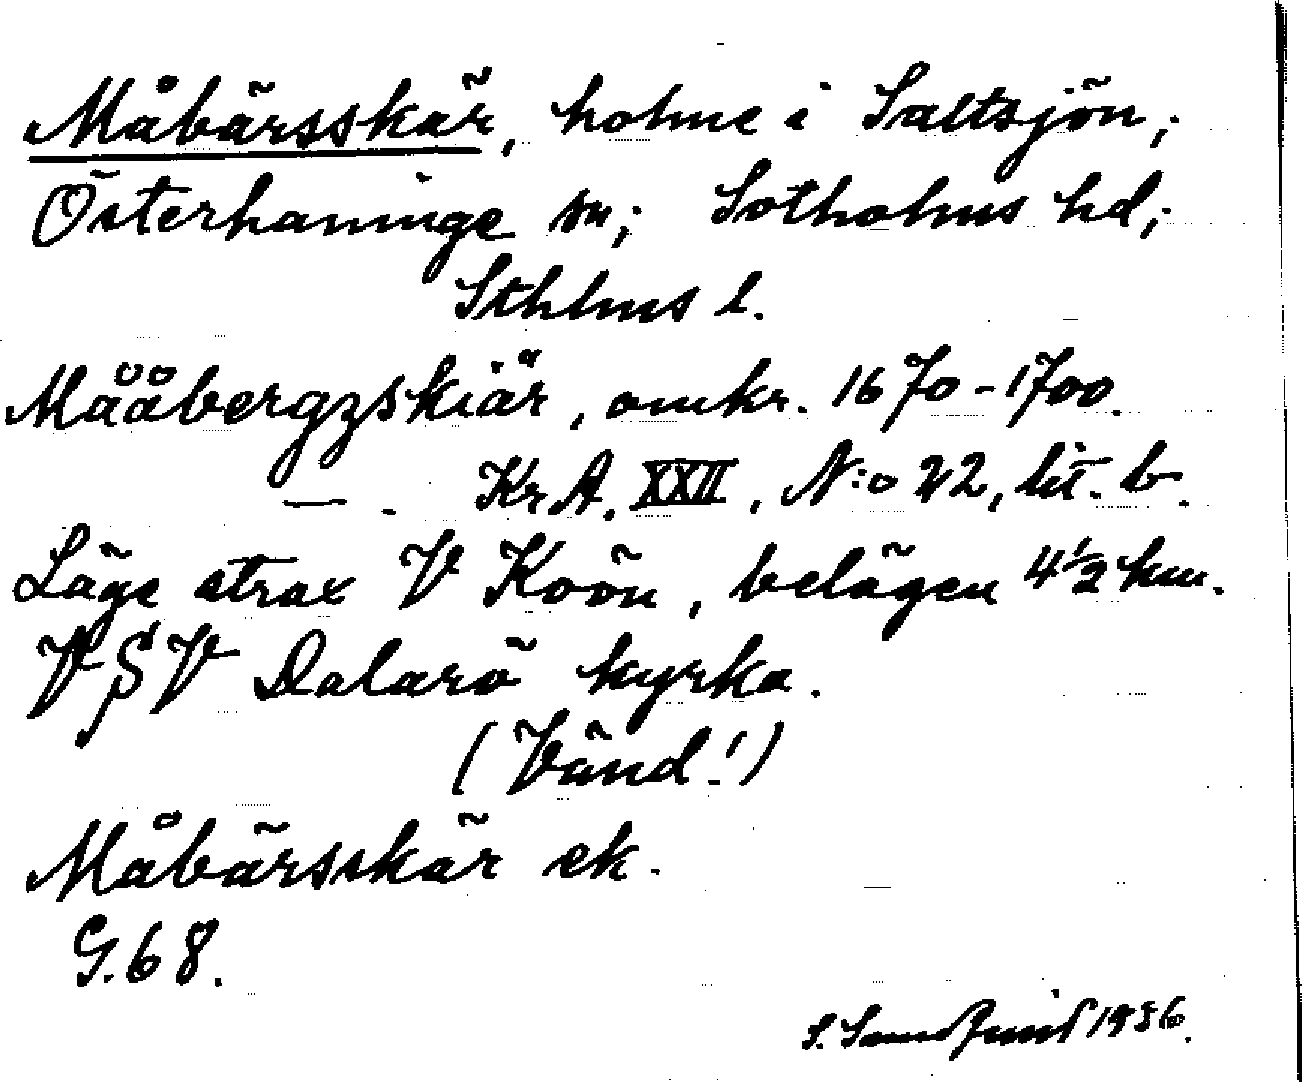 Måbärsskär, holme i Saltsjön;
Österhaninge sn; Sotholms hd;
Sthlms l.
Mååbergzskiär, omkr. 1670-1700.
— . Kr.A. XXII, N:o 22, lit. b.
Läge strax V Koön, belägen 4 1/2 km.
VSV Dalarö kyrka.
(Vänd!)
Måbärsskär ek.
G. 68.
S. 1936.